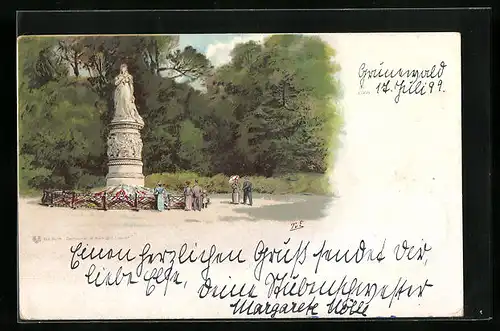 Grünewald
17. Juli 99.
Einen herzlichen Gruß sendet Dir,
liebe Else, Deine Stubenschwester
Margarete